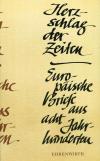 Herz-
schlag
der
Zeiten
Euro-
päische
Briefe
aus
acht
Jahr-
hunderten
EHRENWIRTH